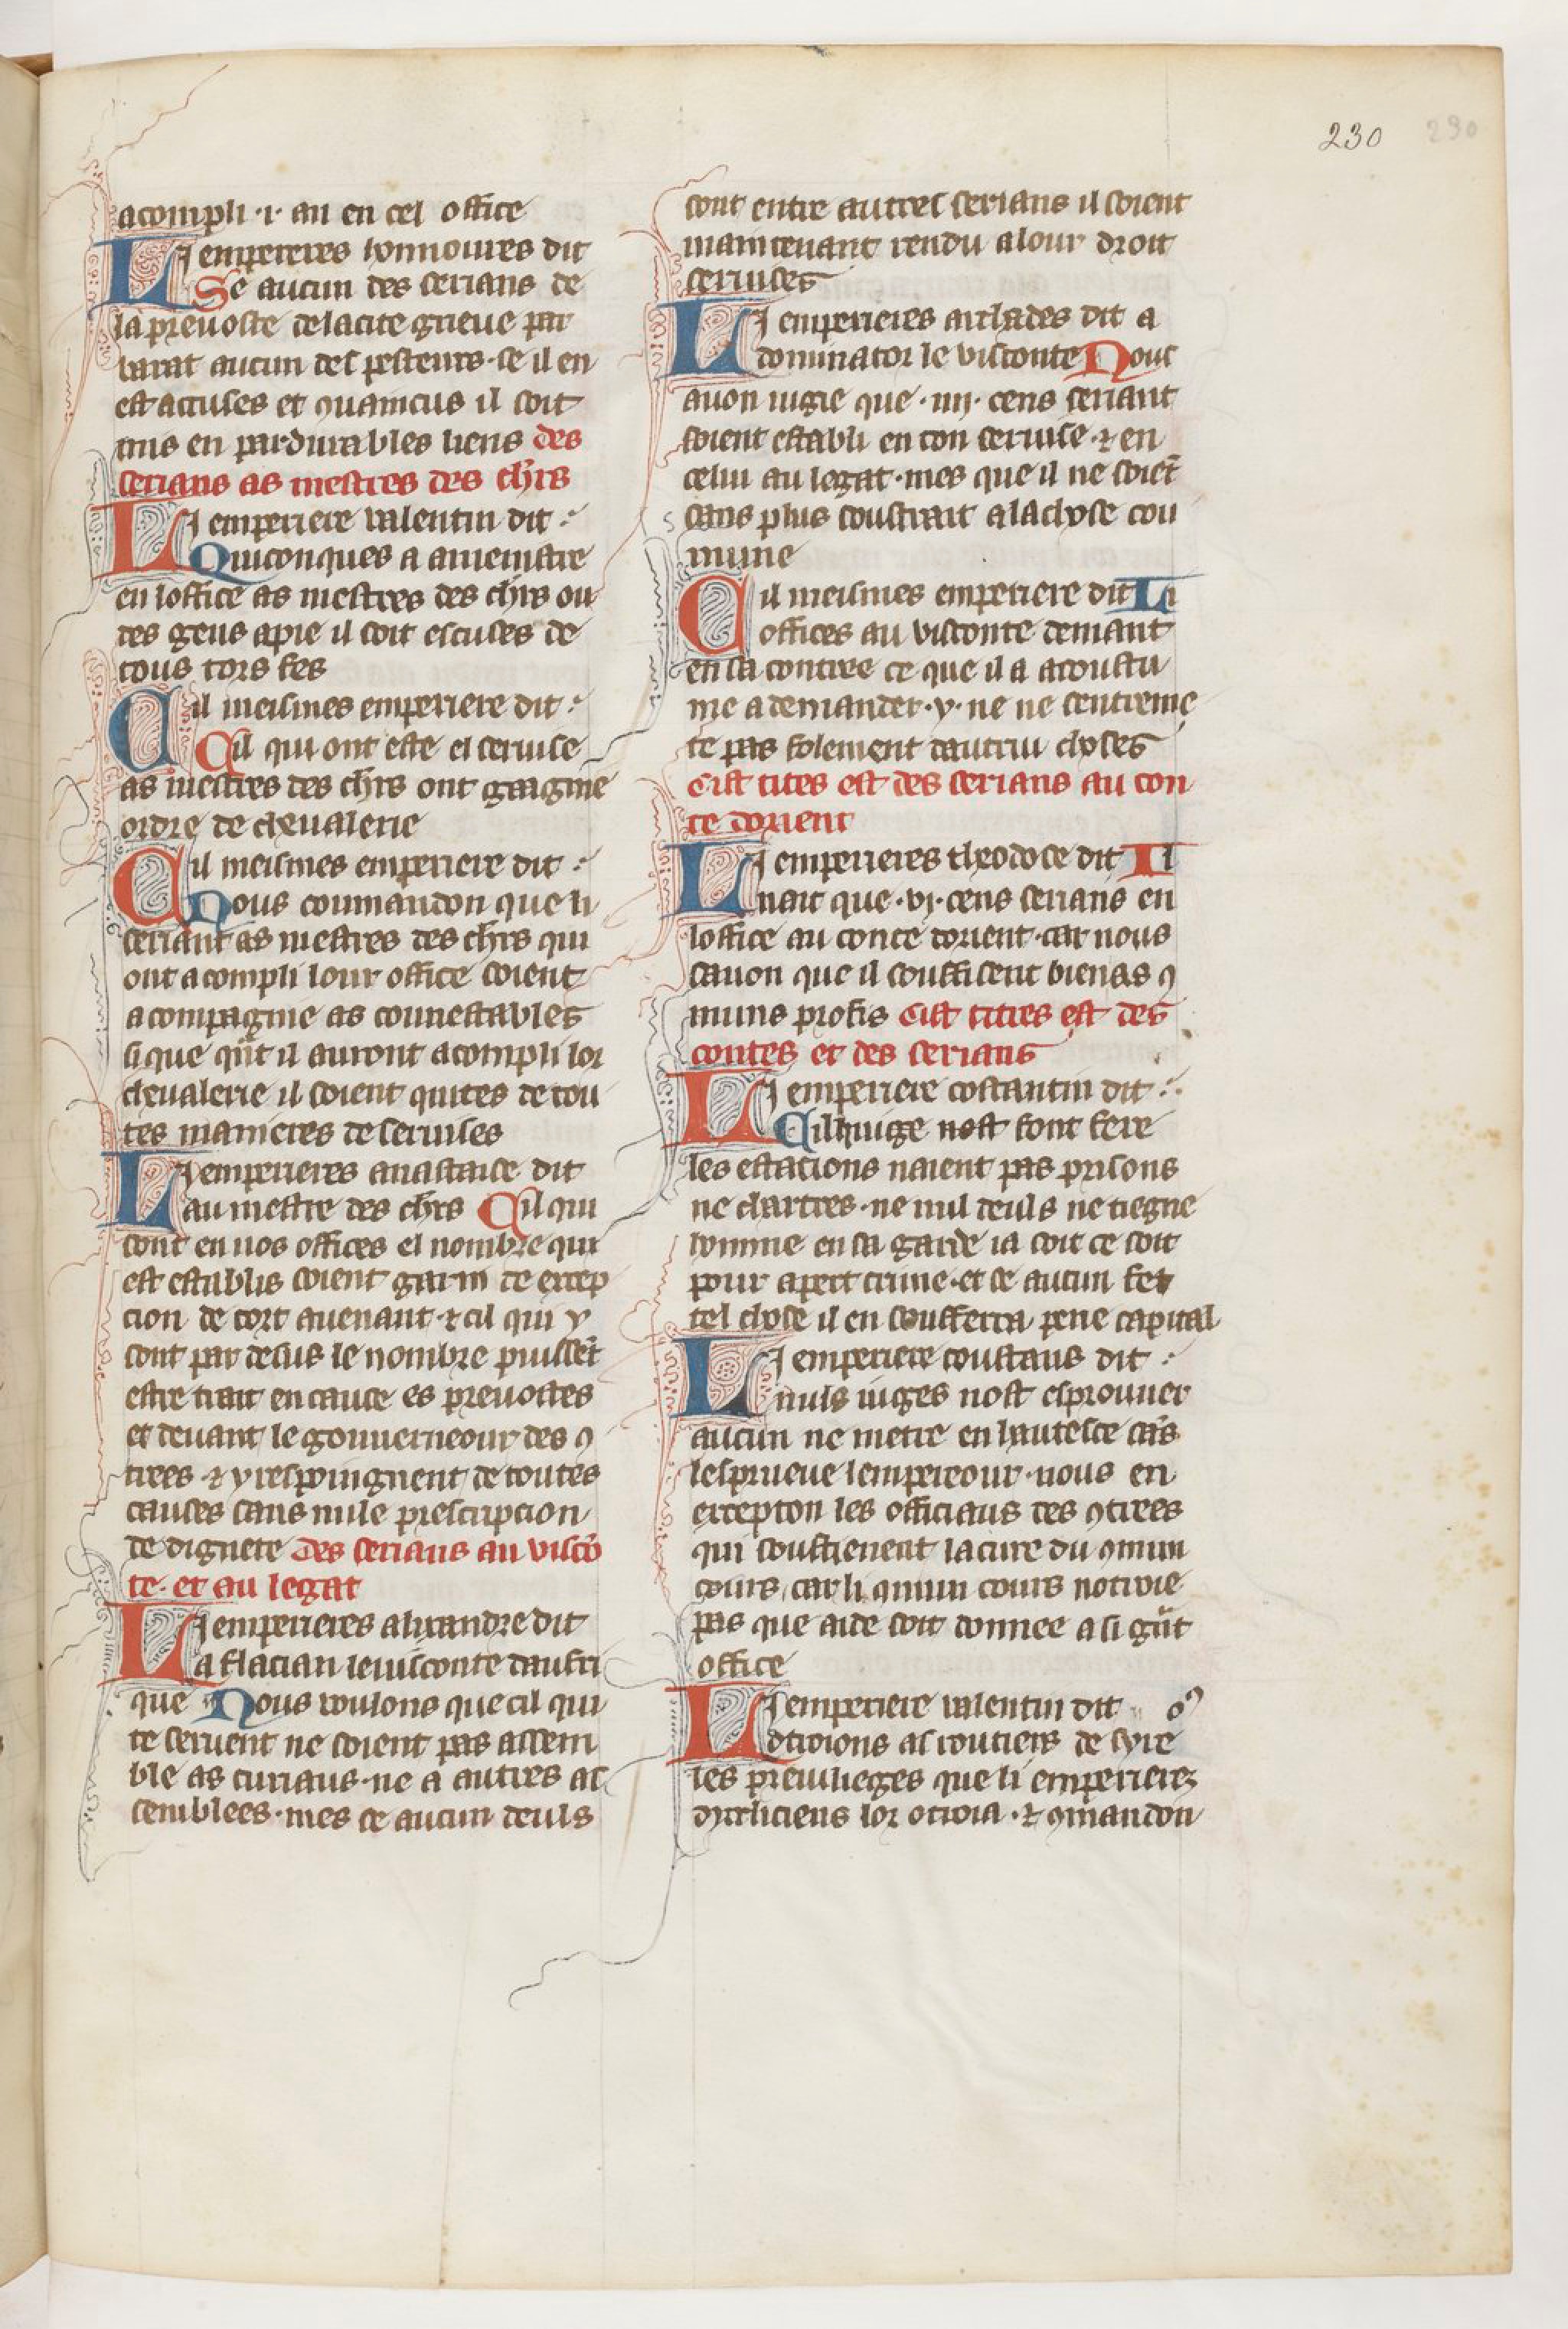 230
230
acompli .i. an en cel office
Li empereres honnoures dit
Se aucun des serians de
la prevoste de la cite grieve par
barat aucun des pesteurs. se il en
est accuses et 9vaincus il soit
mis en pardurables liens des
serians as mestres des chrs
Li emperiere valentin dit :
Quiconques a amenistre
en loffice as mestres des chrs ou
des gens a pie il soit escuses de
tous tors fes
Cil meismes emperiere dit :
Cil qui ont este el servise
as mestres des chrs ont gaignie
ordre de chevalerie
Cil meismes emperiere dit :
Nous coumandon que li
seriant as mestres des chrs qui
ont acompli lour office soient
acompagnie as connestables
si que qnt il auront acompli lor
chevalerie il soient quites de tou
tes manieres de servises
Li emperieres anastaise dit
au mestre des chrs Cil qui
sont en nos offices el nombre qui
est establis soient garni de excep
cion de cort avenant. & cil qui y
sont par desus le nombre puissēt
estre trait en cause es prevostes
et devant le gouverneour des 9
trees & y respoingnent de toutes
causes sans nule prescripcion
de dignete Des serians au viscō
te. et au legat
Li emperieres alixandre dit
a flacian le visconte daufri
que Nous voulons que cil qui
te servent ne soient pas assem
ble as curiaus. ne a autres as
semblees. mes se aucun deuls
sont entre autres serians il soient
maintenant rendu a lour droit
servises
Li emperieres archades dit a
dominator le visconte Nous
avon iugie que .iiij. cens seriant
soient establi en ton servise. & en
celui au legat. mes que il ne soiēt
sans plus soustrait a la chose cou
mune
Cil meismes emperiere dit Li
offices au visconte demant
en sa contree ce que il a acoustu
me a demander. y. ne ne sentreme
te pas folement dautrui choses
Cist titres est des serians au con
te dorient
Li emperieres theodose dit Il
nait que .vj. cens serians en
loffice au conte dorient. car nous
savon que il souffisent bien as 9
muns profis Cist titres est des
contes et des serians
Li emperiere costantin dit :
Cil iuige nost font fere
les estacions naient pas prisons
ne chartres. ne nul deuls ne tiegne
homme en sa garde ia soit ce soit
pour apert crime. et se aucun fet
tel chose il en soufferra pene capital
Li emperiere coustans dit :
nuls iuges nost esprouver
aucun ne metre en hautesce sās
lesprueve lempereour. nous en
excepton les officiaus des 9trees
qui soustienent la cure du 9mun
cours. car li 9mun cours notroie
pas que aide soit donnee a si gnt
office
Li emperiere valentin dit o9
otroions as routiers de syre
les previlieges que li emperieres
dyocliciens lor otroia. & 9mandon